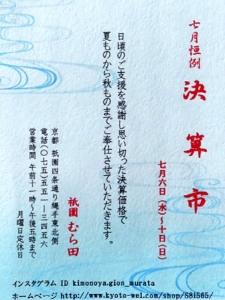 七月恒例
決算市
七月六日(水)～十日(日)
日頃のご支援を感謝し思い切った決算価格で
夏ものから秋ものまでご奉仕させていただきます。
祇園 むら田
京都 祇園四条通り縄手東北側
電話(〇七五)五五一－三四五六
営業時間 午前十一時～午後五時まで
月曜日定休日
インスタグラム ID kimonoya.gion_murata
ホームページ http://www.kyoto-wel.com/shop/S81565/